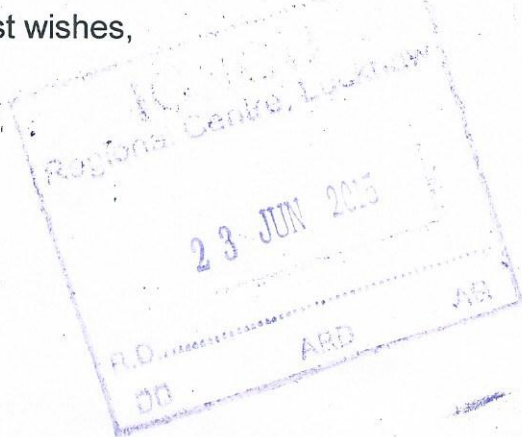 st wishes,
IGNOU
Regional Centre, Lucknow
23 JUN 2015
R.D. ..................
DD ARD AR